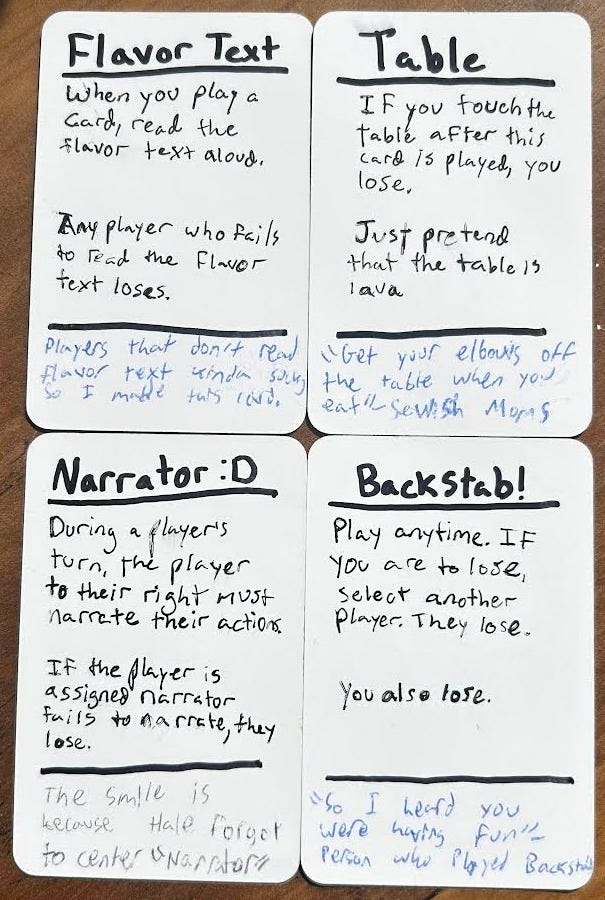 Flavor Text
When you play a
Card, read the
flavor text aloud.
Any player who fails
to read the Flavor
text loses.
Players that don't read
flavor text kinda suck,
So I made this card.
Table
If you touch the
table after this
card is played, you
lose.
Just pretend
that the table is
lava
"Get your elbows off
the table when you
eat"- Jewish Moms
Narrator :D
During a player's
turn, the player
to their right must
narrate their actions.
If the player is
assigned narrator
fails to narrate, they
lose.
The smile is
because Hale Forgot
to center "Narrator"
Backstab!
Play anytime. If
you are to lose,
select another
Player. They lose.
You also lose.
"So I heard you
were having fun"-
Person who Played Backstab